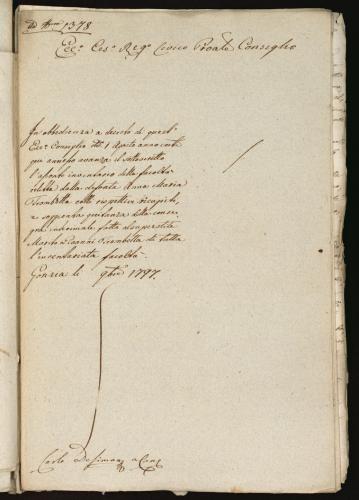 1378
Ecc.o Ces.o Reg.o Civico Provle Conseglio
In obbedienza a decreto di questo
Ecc.o Conseglio 1 Agosto anno corrte
qui annesso avanza il sottoscritto
l'aperto inventario della facoltà
relitta dalla defonta Anna Maria
colli rispettivi recapiti,
e apposita quitanza della conse
gna infor­male fatta al superstite
Marito Giovanni di tutta
l'inventariata facoltà
Gorizia li 9bre 1797.
Carlo Desimon